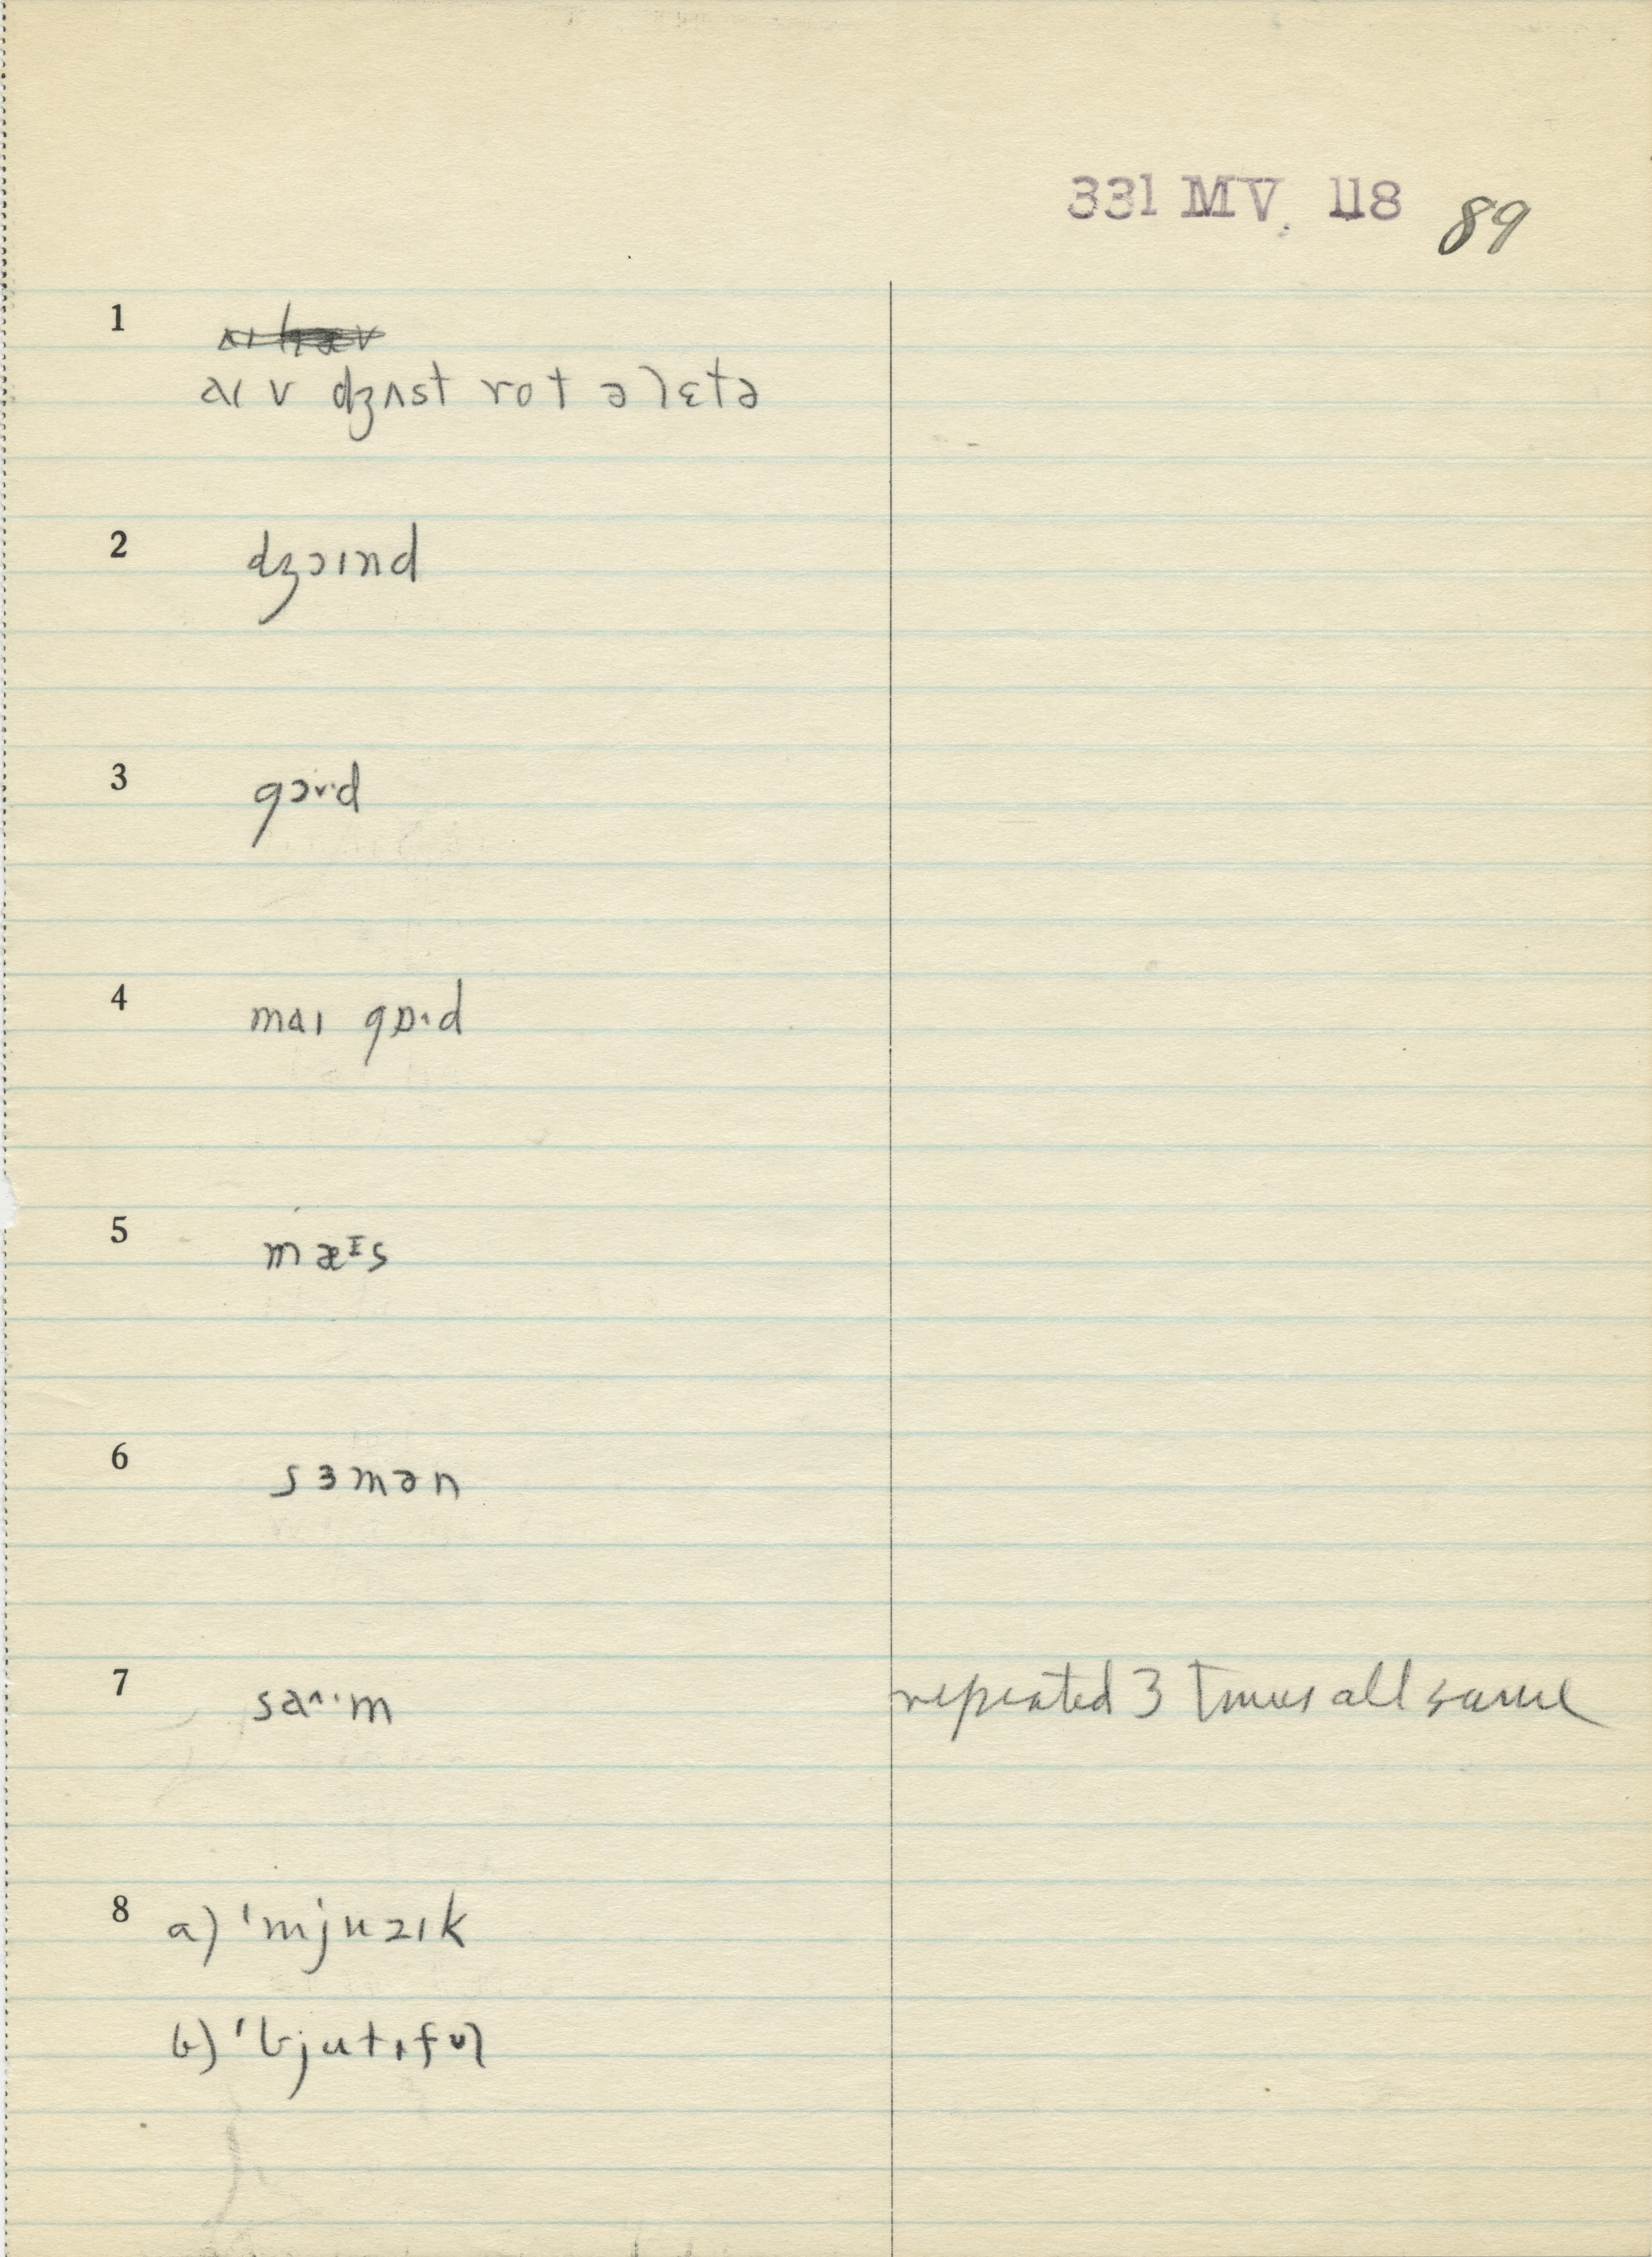 331 MV. 118 89
1
aɪ v dʒʌst rot ə lɛtə
2 dʒɔɪnd
3 gɔˑd
4 maɪ gɒˑd
5 mæᶦs
6 sɜmən
7 saˑm repeated 3 times all same
8 a) ˈmjuzɪk
b) ˈbjutɪfʊl